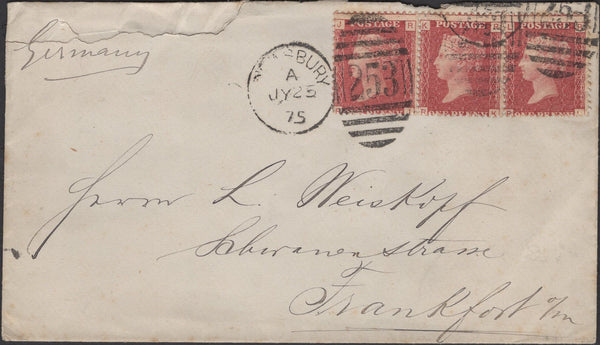 Germany
BURY
A
JY 25
75
253
POSTAGE
POSTAGE
POSTAGE
J R
K R
L
253
ONE PENNY
Herrn L. Weiskopf
Schwanenstrasse
Frankfort o/m